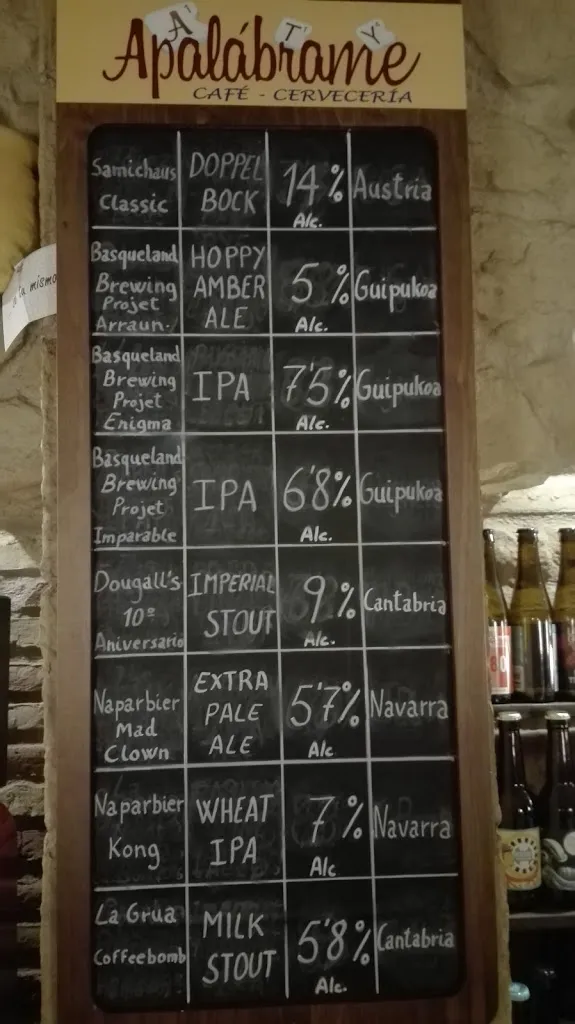 A' T' Y'
Apalábrame
CAFÉ - CERVECERÍA
Samichaus
Classic
DOPPEL
BOCK
14%
Alc.
Austria
Basqueland
Brewing
Projet
Arraun.
HOPPY
AMBER
ALE
5%
Alc.
Guipukoa
Basqueland
Brewing
Projet
Enigma
IPA
7'5%
Alc.
Guipukoa
Basqueland
Brewing
Projet
Imparable
IPA
6'8%
Alc.
Guipukoa
Dougall's
10º
Aniversario
IMPERIAL
STOUT
9%
Alc.
Cantabria
Naparbier
Mad
Clown
EXTRA
PALE
ALE
5'7%
Alc
Navarra
Naparbier
Kong
WHEAT
IPA
7%
Alc
Navarra
La Grua
Coffeebomb
MILK
STOUT
5'8%
Alc.
Cantabria
mismo